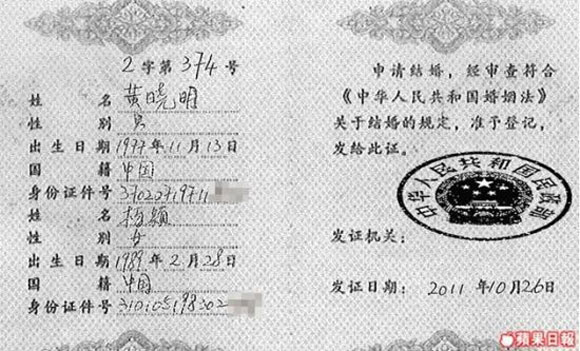 2字第374号
姓 名 黄晓明
性 别 男
出生日期 1977年11月13日
国 籍 中国
身份证件号 3702271971
姓 名 杨颖
性 别 女
出生日期 1989年2月28日
国 籍 中国
身份证件号 310105198902
申请结婚，经审查符合
《中华人民共和国婚姻法》
关于结婚的规定，准予登记，
发给此证。
中华人民共和国民政部
发证机关：
发证日期： 2011年10月26日
蘋果日報